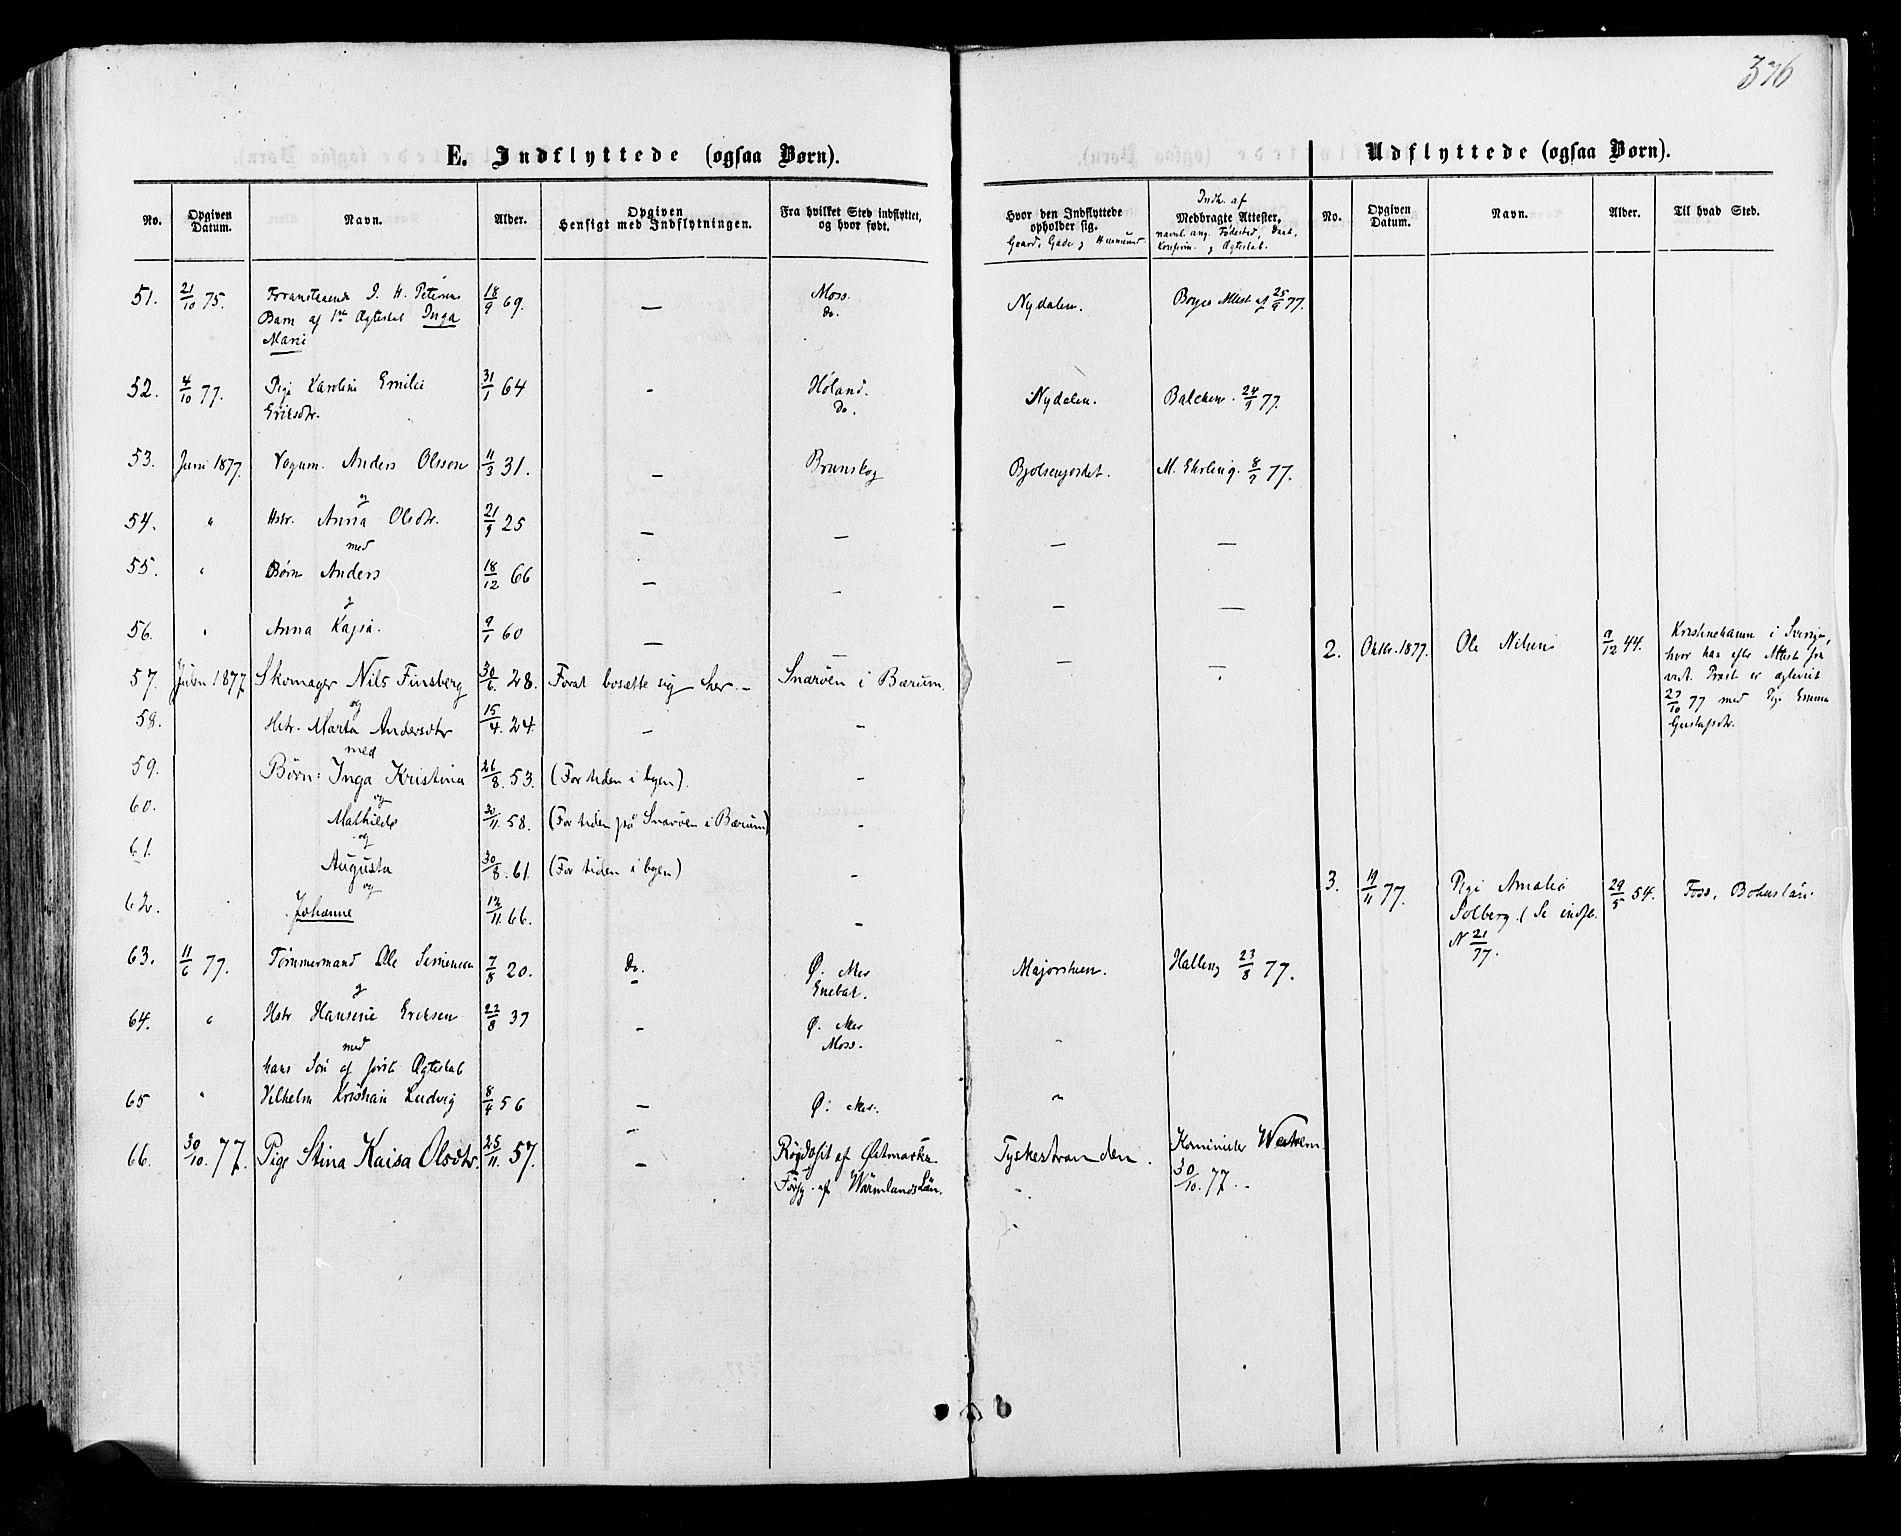 376
E. Indflyttede (ogsaa Børn).
No. Opgiven Datum. Navn. Alder. Opgiven Hensigt med Indflytningen. Fra hvilket Sted indflyttet, og hvor født.
51. 21/10 75. Foranstaaende J. H. Petersens 18/9 69. — Moss.
Barn af 1ste Ægteskab Inga do.
Marie
52. 4/10 77. Pige Karoline Emilie 31/1 64 - Høland.
Eriksdtr. do.
53. Juni 1877. Anders Olsson 11/3 31. — Brunskog
og
54. " Hstr. Anna Olsdtr. 21/9 25 — —
med
55. " Børn Anders 18/12 66 — -
og
56. " Anna Kajsa. 9/1 60 — —
57. Julen 1877 Skomager Nils Finsberg 30/6. 28. For at bosætte sig her. — Snarøen i Bærum.
og
58. Hstr. Marta Andersdtr 15/4. 24. — -
med
59. Børn: Inga Kristina 26/8. 53. (For tiden i byen). -
og
60. Mathilde 30/11. 58. (For tiden på Snarøen i Bærum) -
og
61. Augusta 30/8. 61. (For tiden i byen) -
og
62. Johanne 12/11 66. -
63. 11/6 77. Tømmermand Ole Simensen 7/8 20. do. Ø. Aker
og Enebak.
64. " Hstr Hansine Eriksen 22/8 37 - Ø. Aker
med Moss.
hans Søn af førit Ægteskab
65 " Vilhelm Kristian Ludvig 8/4 56 — Ø. Aker.
66. 30/10. 77. Pige Stina Kaisa Olsdtr. 25/11. 57. — Røgdåsit af Østmarks
Försg. af Wärmlands Län.
Hvor den Indflyttede opholder sig. Medbragte Attester,
Gaard, Gade og Husnumer Indh. af navnl. ang. Fødested, Daab, Konfirm. og Ægteskab.
Nydalen. Borges Attest af 25/9 77.
Nydalen. Balchen. 24/9 77.
Bjølsenjordet. M. Ehrling. 8/9 77.
— —
— —
— —
Majorstuen. Halling 23/8 77.
"
"
Tyskestranden. Kominister Westrem
30/10. 77.
Udflyttede (ogsaa Børn).
No. Opgiven Datum. Navn. Alder. Til hvad Sted.
2. Oktbr. 1877. Ole Nilsen 9/12 44. Kristinehamn i Sverige,
hvor han efter Attest fra
vedk. Præst er ægteviet
23/10 77 med Pige Emma
Gustafsdtr.
3. 19/11 77. Pige Amalia 29/5 54. Foss, Bohuslän.
Solberg. (Se indfl.
N 21/77.